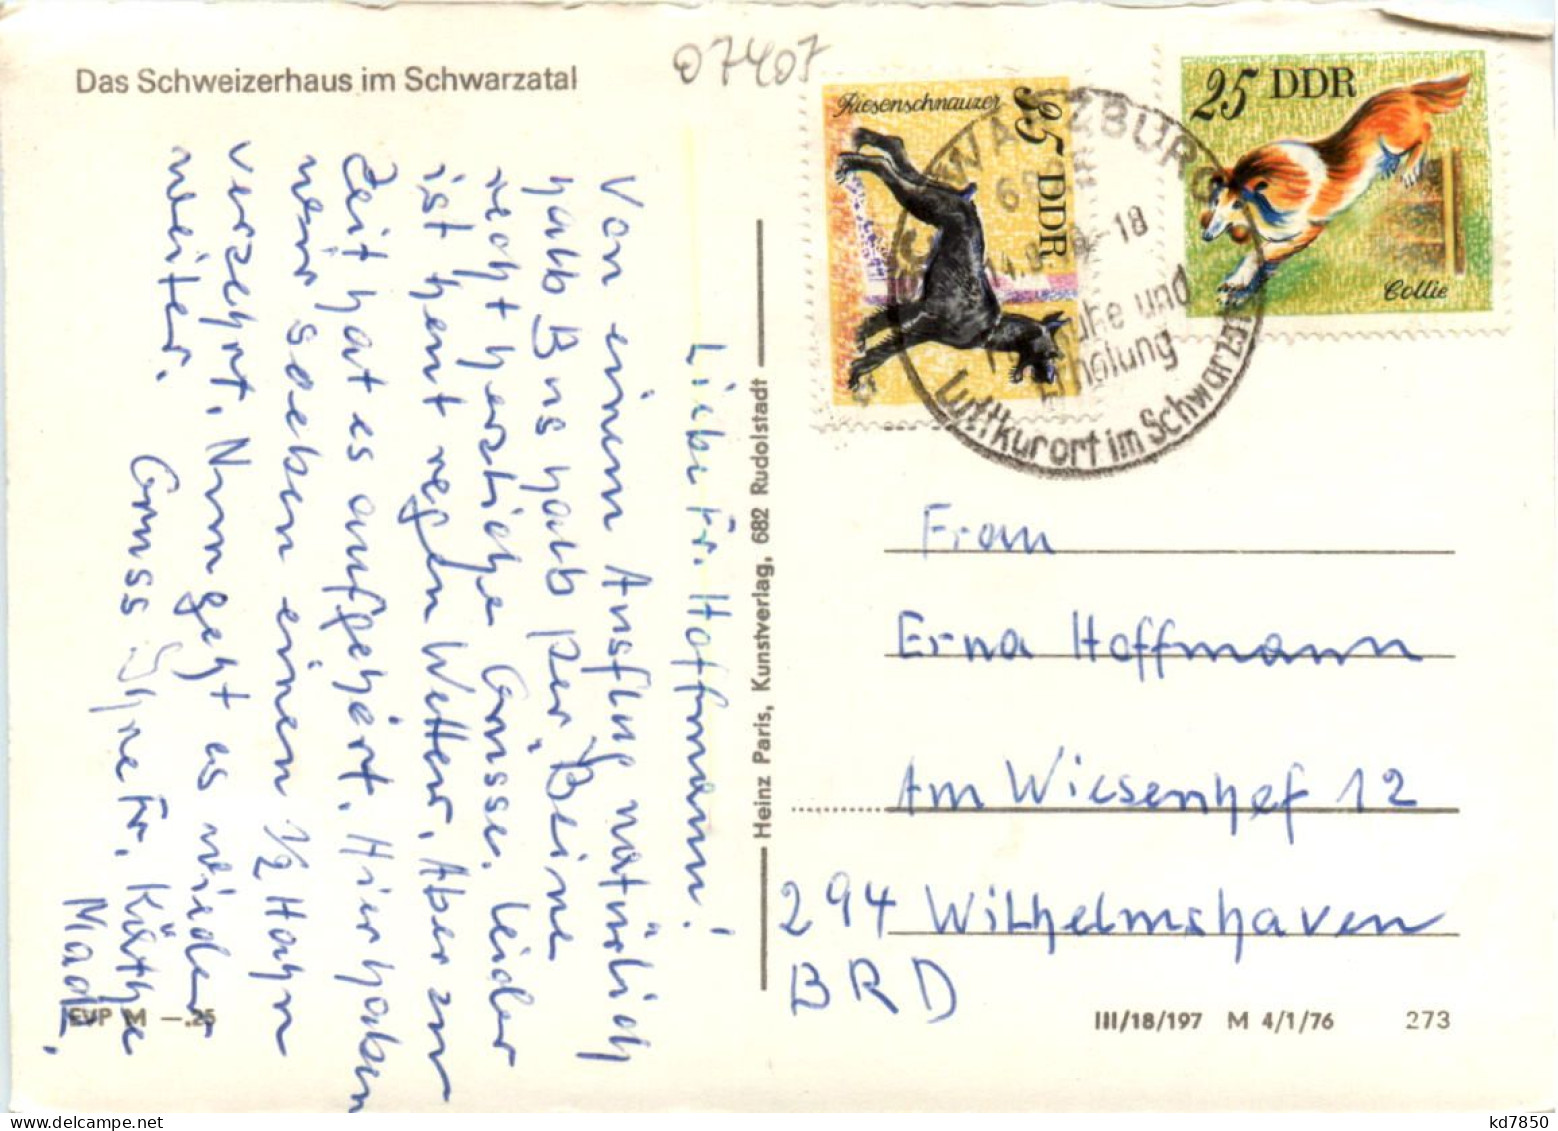 Das Schweizerhaus im Schwarzatal
07407
Riesenschnauzer
25 DDR
25 DDR
Collie
SCHWARZBURG
14.8.
-18
Ruhe und
Erholung
Luftkurort im Schwarzatal
Liebe Fr. Hoffmann!
Von einem Ausflug natürlich
halb Bus halb per Beine
recht herzliche Grüsse. Leider
ist heut regen Wetter. Aber zur
Zeit hat es aufgehört. Hier haben
wir soeben einen 1/2 Hahn
verzehrt. Nun geht es wieder
weiter.
Gruss Ihre Fr. Käthe
Made.
Heinz Paris, Kunstverlag, 682 Rudolstadt
Frau
Erna Hoffmann
Am Wiesenhof 12
294 Wilhelmshaven
BRD
EVP M —.25
III/18/197 M 4/1/76 273
kd7850